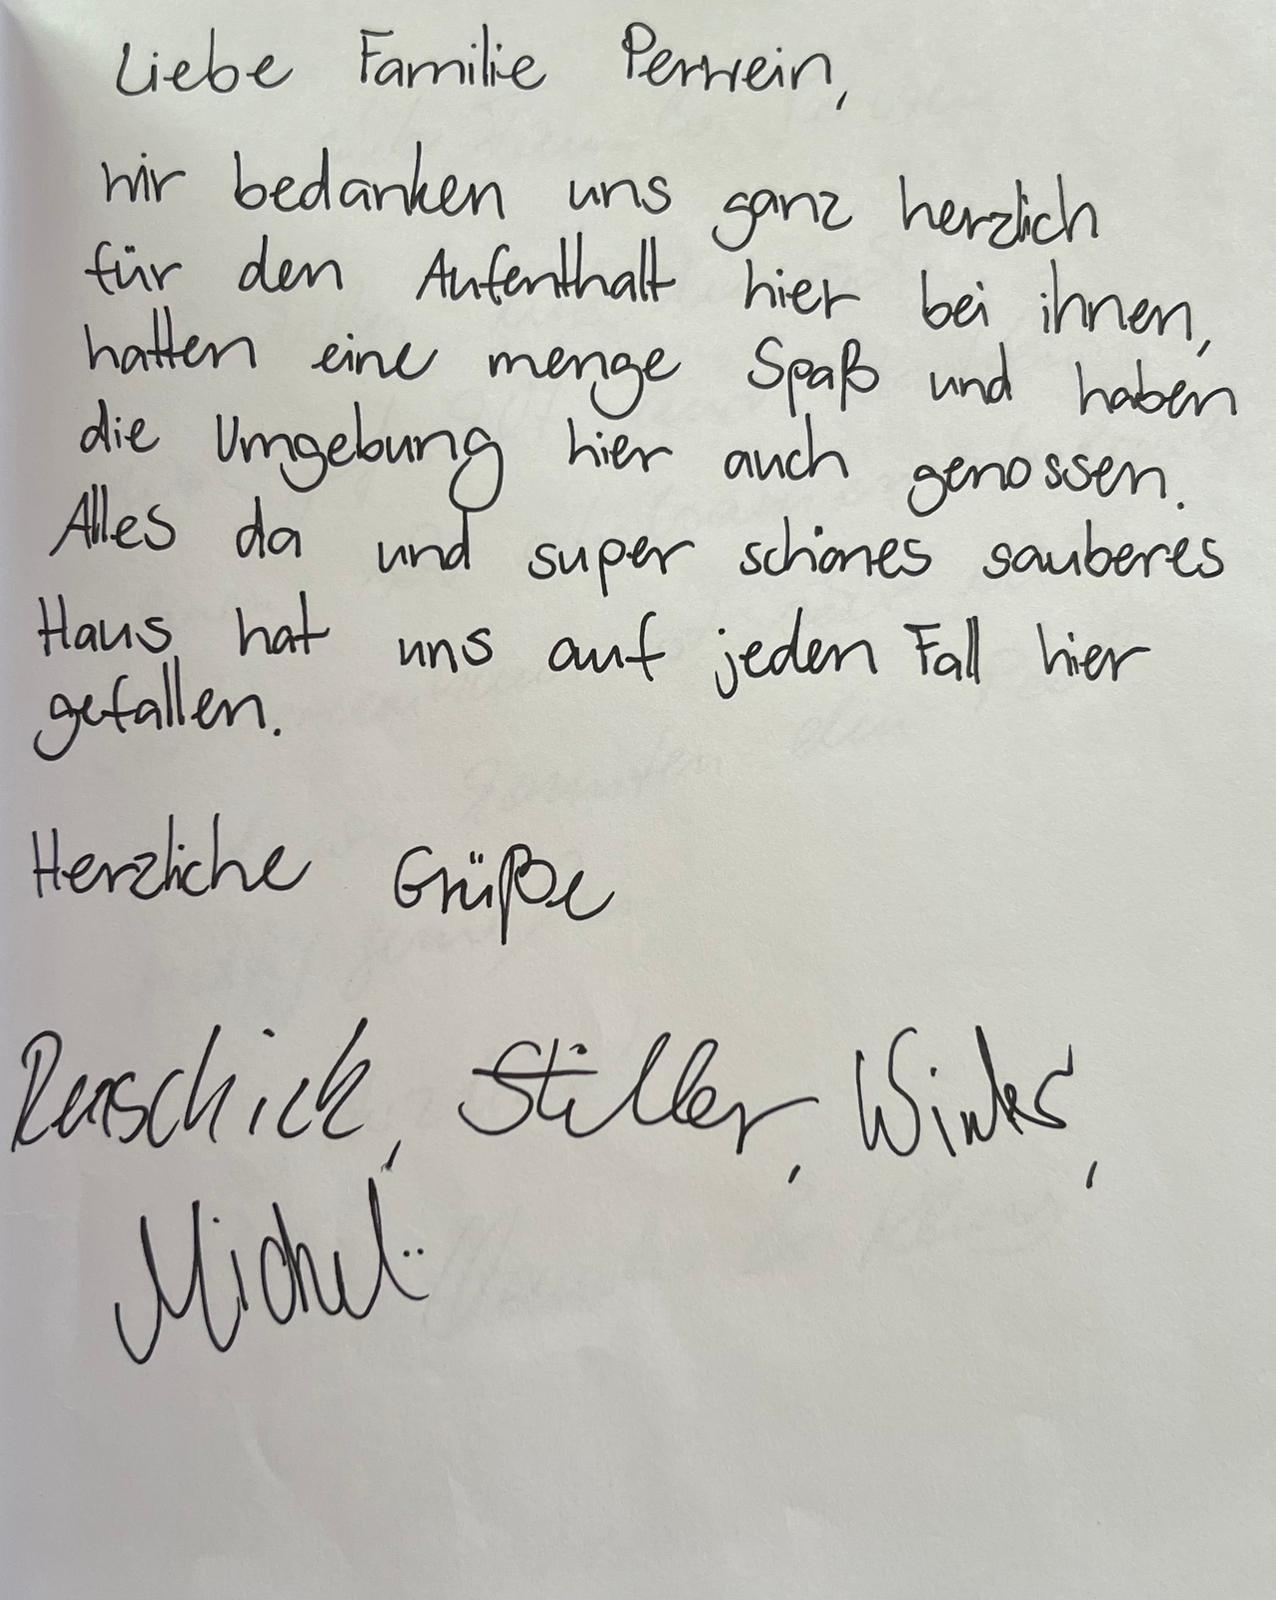 Liebe Familie Perwein,
wir bedanken uns ganz herzlich
für den Aufenthalt hier bei ihnen,
hatten eine menge Spaß und haben
die Umgebung hier auch genossen.
Alles da und super schönes sauberes
Haus, hat uns auf jeden Fall hier
gefallen.
Herzliche Grüße
Stiller, Winter,
Michel